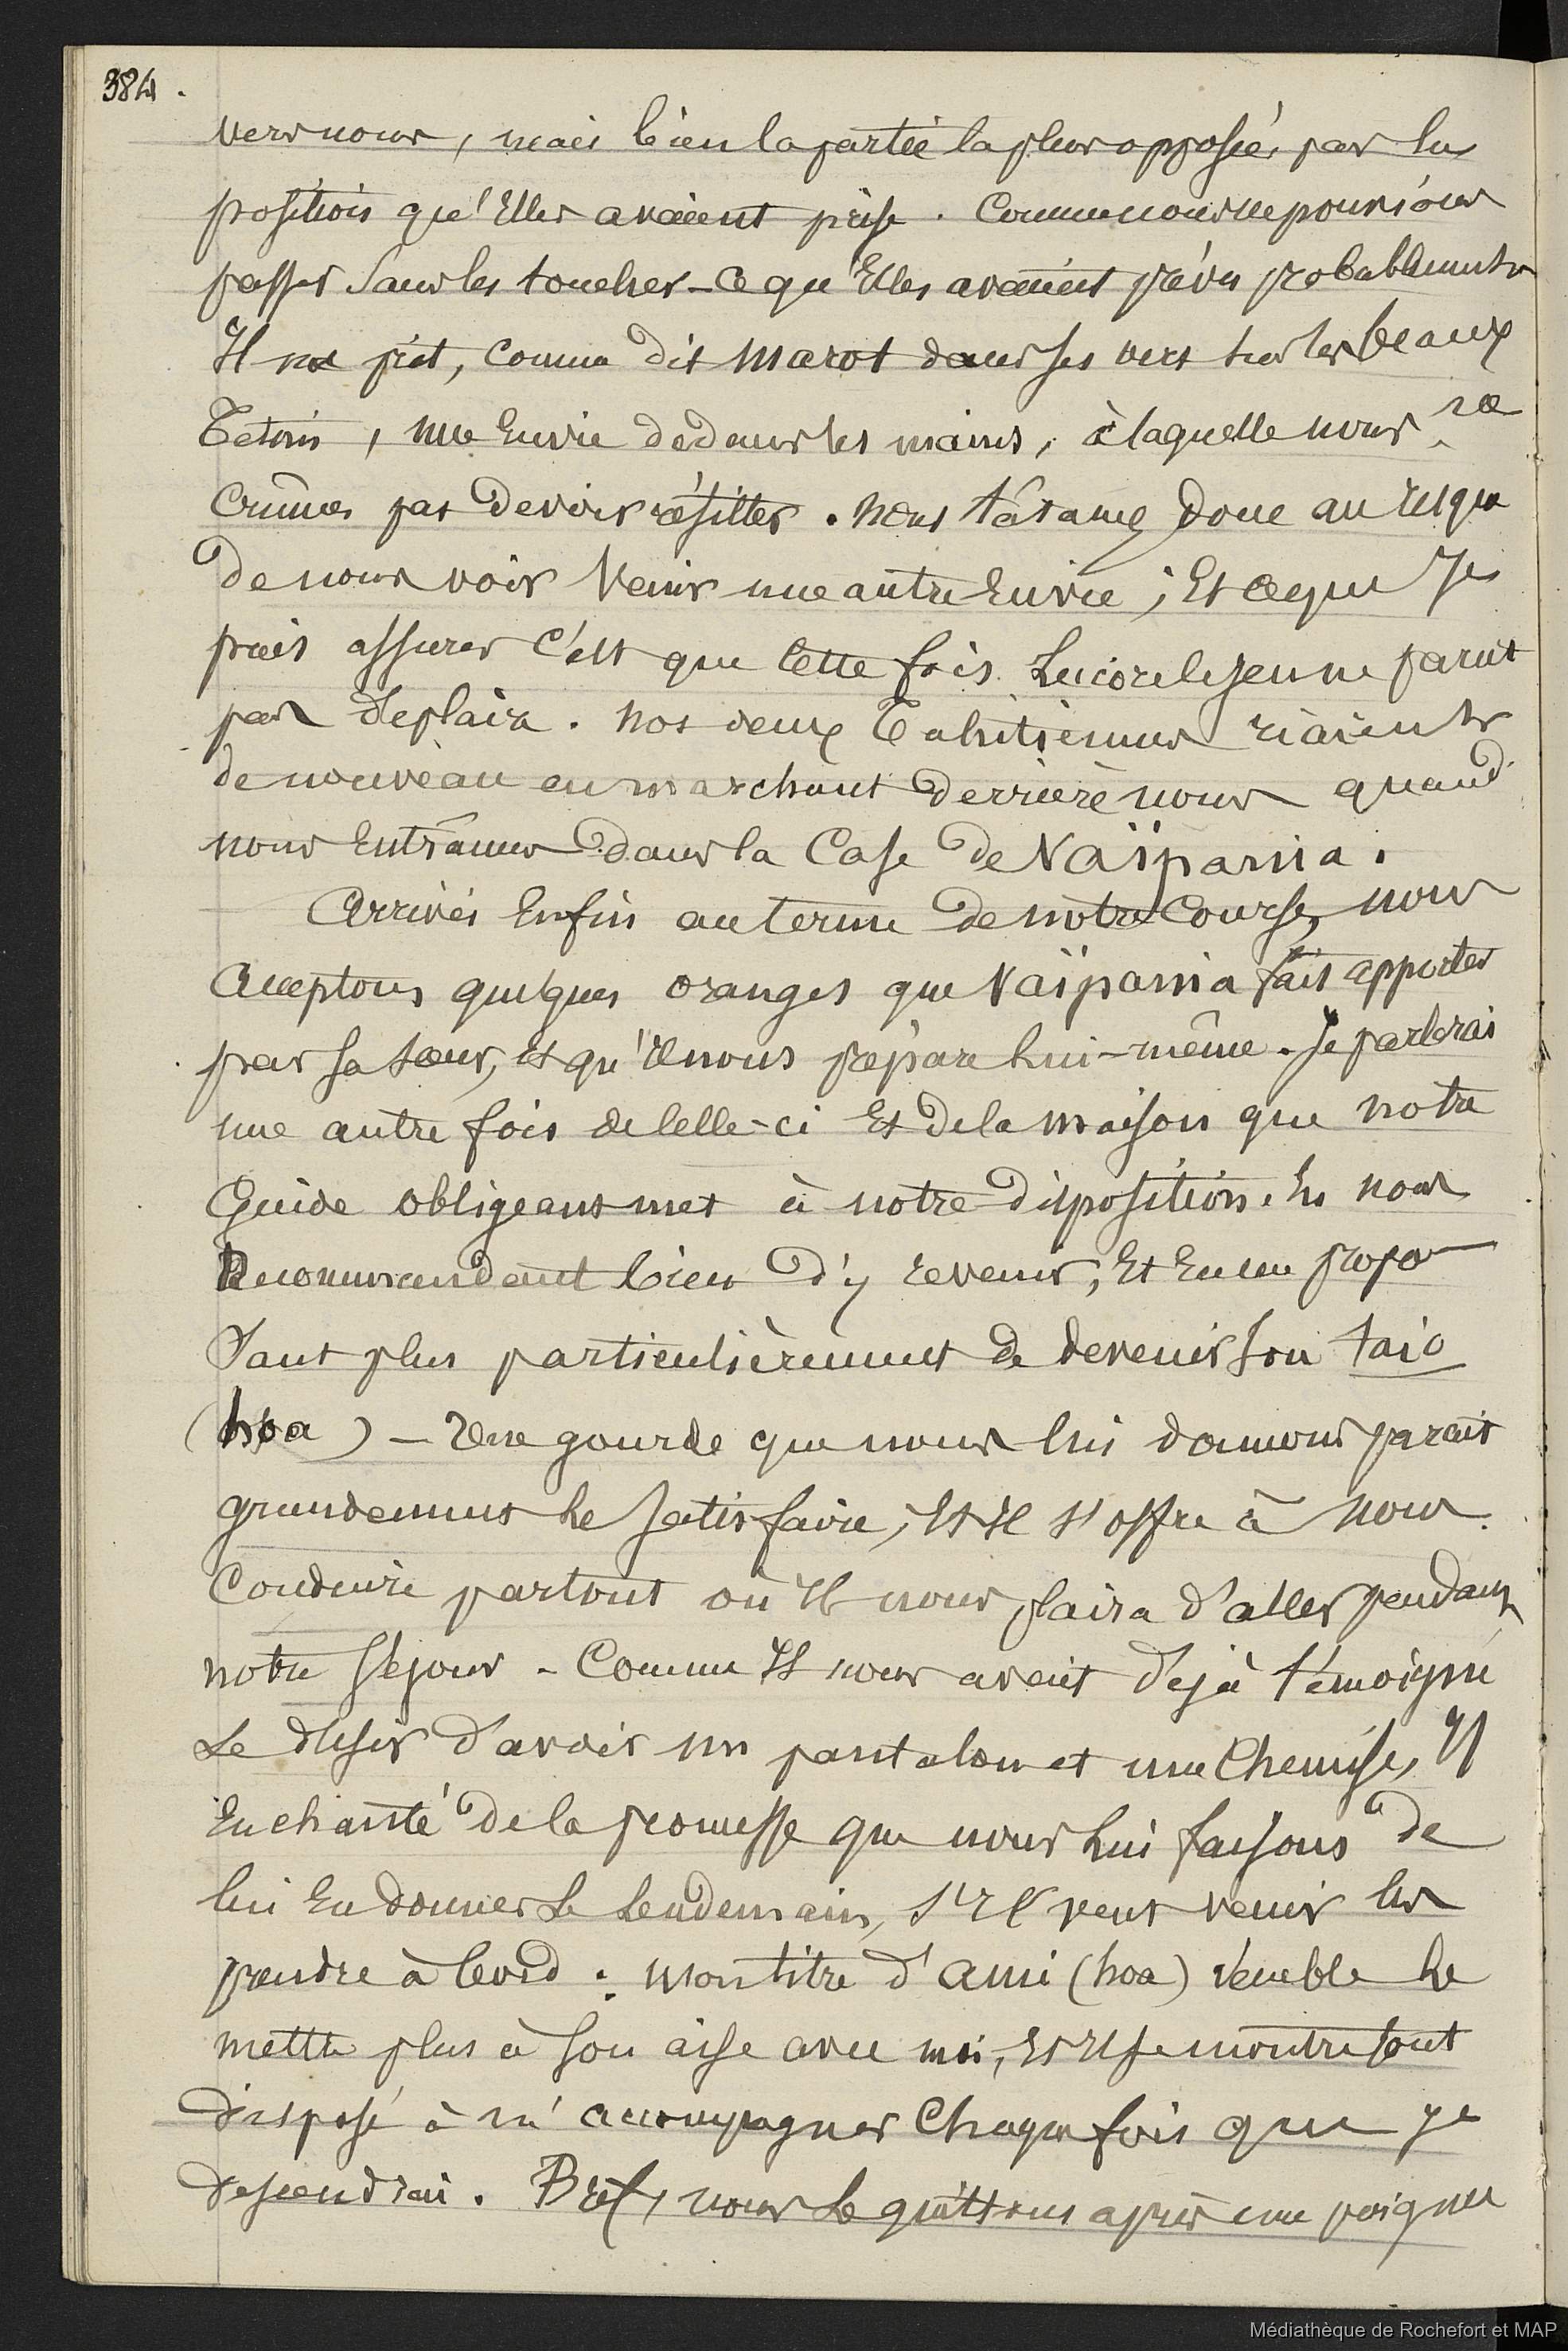 384.
vers nous, mais bien la partie la plus opposée, par la
position qu'Elles avaient prise. Comme nous ne pouvions
passer sans les toucher – ce qu'Elles avaient prévu probablement
Il nous prit, comme dit Marot dans ses vers sur les beaux
Tetins, une Envie dedans les mains, à laquelle nous ne
crûmes pas devoir résister. Nous tâtames donc au risque
de nous voir venir une autre Envie; Et ce que Je
puis assurer c'est que cette fois Encore le jeu ne parut
pas déplaire. Nos deux Tahitiennes riaient
de nouveau en marchant derrière nous quand
nous Entrâmes dans la Case de Vaïparia.
Arrivés Enfin au terme de notre Course, nous
Acceptons quelques oranges que Vaïparia fait apporter
par sa sœur, et qu'il nous prépare lui-même. Je parlerai
une autre fois de celle-ci Et de la maison que notre
Guide obligeant met à notre disposition. En nous
Recommandant bien d'y revenir, Et En me propo
sant plus particulièrement de devenir son taio
(hoa) – Une gourde que nous lui donnons paraît
grandement le satisfaire, Et Il s'offre à nous
Conduire partout où Il nous plaira d'aller pendant
notre séjour – Comme Il nous avait déjà témoigné
Le désir d'avoir un pantalon et une Chemise, Il
Enchanté de la promesse que nous lui faisons de
lui En donner Le Lendemain, s'Il veut venir les
prendre à bord. Mon titre d'ami (hoa) semble le
mettre plus à son aise avec moi, Et Il se montre tout
disposé à m'accompagner Chaque fois que je
descendrai. Bref, nous Le quittons après une poignée
Médiathèque de Rochefort et MAP